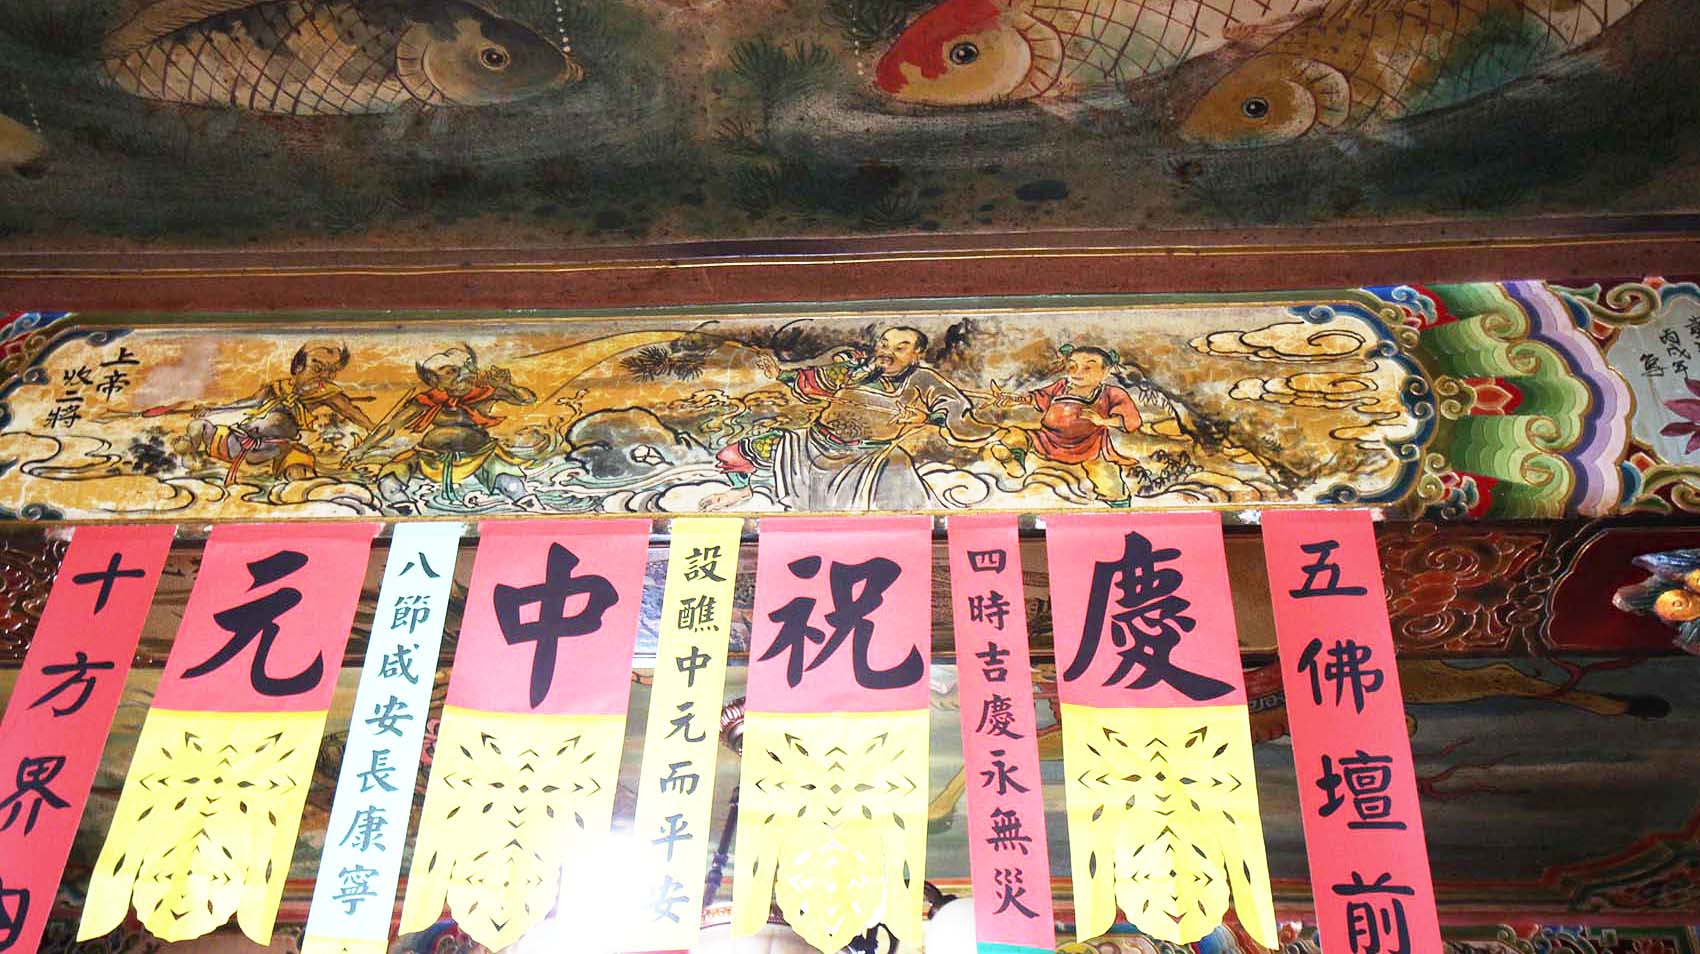 上帝
收二將
丙戌年
五佛壇前
慶祝中元
四時吉慶永無災
設醮中元而平安
八節咸安長康寧
十方界內